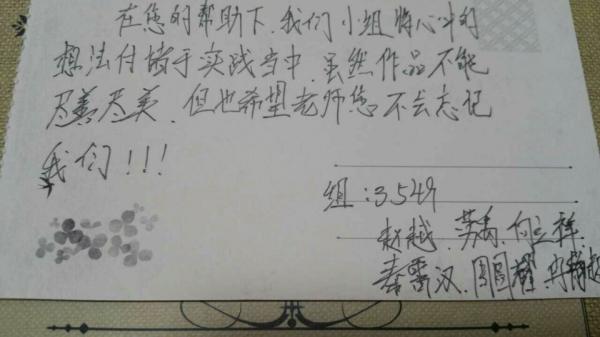 在您的帮助下,我们小组将心中的
想法付储于实践当中,虽然作品不能
尽善尽美,但也希望老师您不会忘记
我们!!!
组:3.549
赵越、苏禹、向立祥、
秦雷汉、周圆